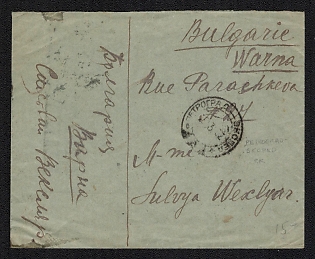 Bulgarie
Warna
Rue Parachkeva
4
M-me
Sulvya Wexlyar.
Болгария
Варна
ПЕТРОГРАД
15